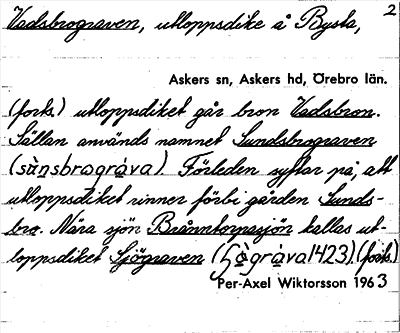 Vadsbrograven, utloppsdike å Bysta, 2
Askers sn, Askers hd, Örebro län.
(forts.) utloppsdiket går bron Vadsbron.
Sällan används namnet Sundsbrograven
(sùnsbrogràva). Förleden syftar på, att
utloppsdiket rinner förbi gården Sunds-
bro. Nära sjön Bränntorpasjön kallas ut-
loppsdiket Sjögraven (ʃògràva 1423). (forts.)
Per-Axel Wiktorsson 1963